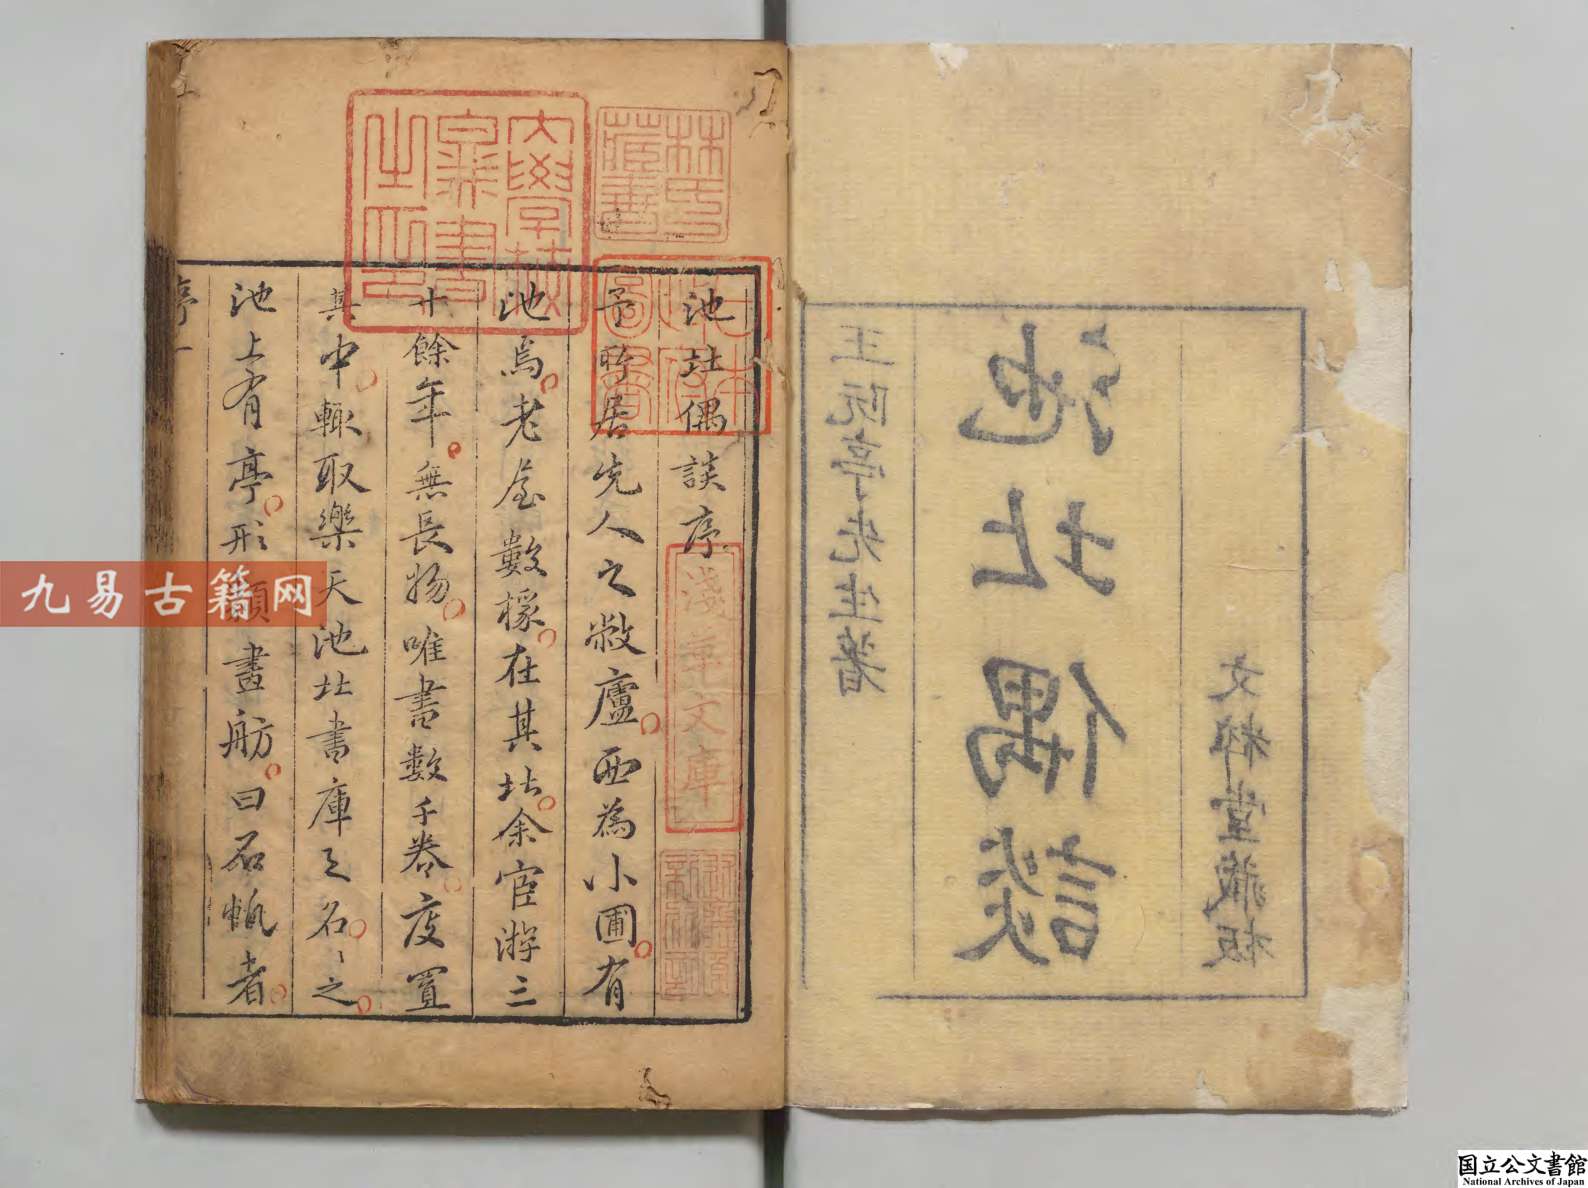 王阮亭先生著
池北偶談
文粹堂藏板
池北偶談序
予所居先人之敝廬西為小圃有
池焉老屋數椽在其北余宦游三
十餘年無長物唯書數千卷庋置
其中輒取樂天池北書庫之名名之
池上有亭形類畫舫曰石帆者
亭一
大學校
之印
林氏
藏書
日本
淺草文庫
九易古籍网
国立公文書館
National Archives of Japan